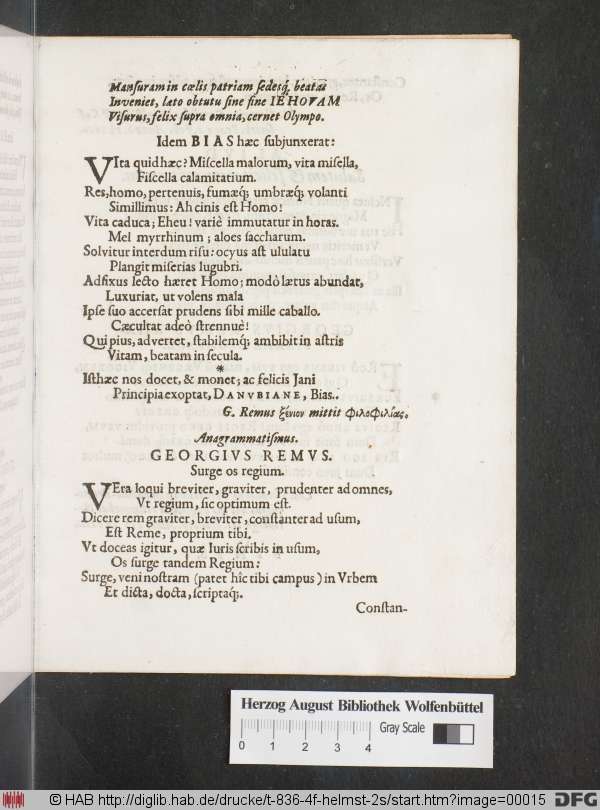 Manſuram in cœlis patriam ſedesq́; beatas
Inveniet, læto obtutu ſine fine IEHOVAM
Viſurus, felix ſupra omnia, cernet Olympo.
Idem BIAS hæc ſubjunxerat:
VIta quid hæc? Miſcella malorum, vita miſella,
Fiſcella calamitatium.
Res, homo, pertenuis, fumæq́; umbræq́; volanti
Simillimus: Ah cinis eſt Homo!
Vita caduca; Eheu! variè immutatur in horas.
Mel myrrhinum; aloes ſaccharum.
Solvitur interdum riſu: ocyus aſt ululatu
Plangit miſerias lugubri.
Adfixus lecto hæret Homo; modò lætus abundat,
Luxuriat, ut volens mala
Ipſe ſuo accerſat prudens ſibi mille caballo.
Cæcultat adeò ſtrennuè!
Qui pius, advertet, ſtabilemq́; ambibit in aſtris
Vitam, beatam in ſecula.
*
Iſthæc nos docet, & monet; ac felicis Jani
Principia exoptat, DANVBIANE, Bias..
G. Remus ξένιον mittit φιλοφιλίας.
Anagrammatiſmus.
GEORGIVS REMVS.
Surge os regium.
VEra loqui breviter, graviter, prudenter ad omnes,
Vt regium, ſic optimum eſt.
Dicere rem graviter, breviter, conſtanter ad uſum,
Eſt Reme, proprium tibi.
Vt doceas igitur, quæ Iuris ſcribis in uſum,
Os ſurge tandem Regium:
Surge, veni noſtram (patet hîc tibi campus) in Vrbem
Et dicta, docta, ſcriptaq́;.
Conſtan-
Herzog August Bibliothek Wolfenbüttel
Gray Scale
0 1 2 3 4
© HAB http://diglib.hab.de/drucke/t-836-4f-helmst-2s/start.htm?image=00015
DFG